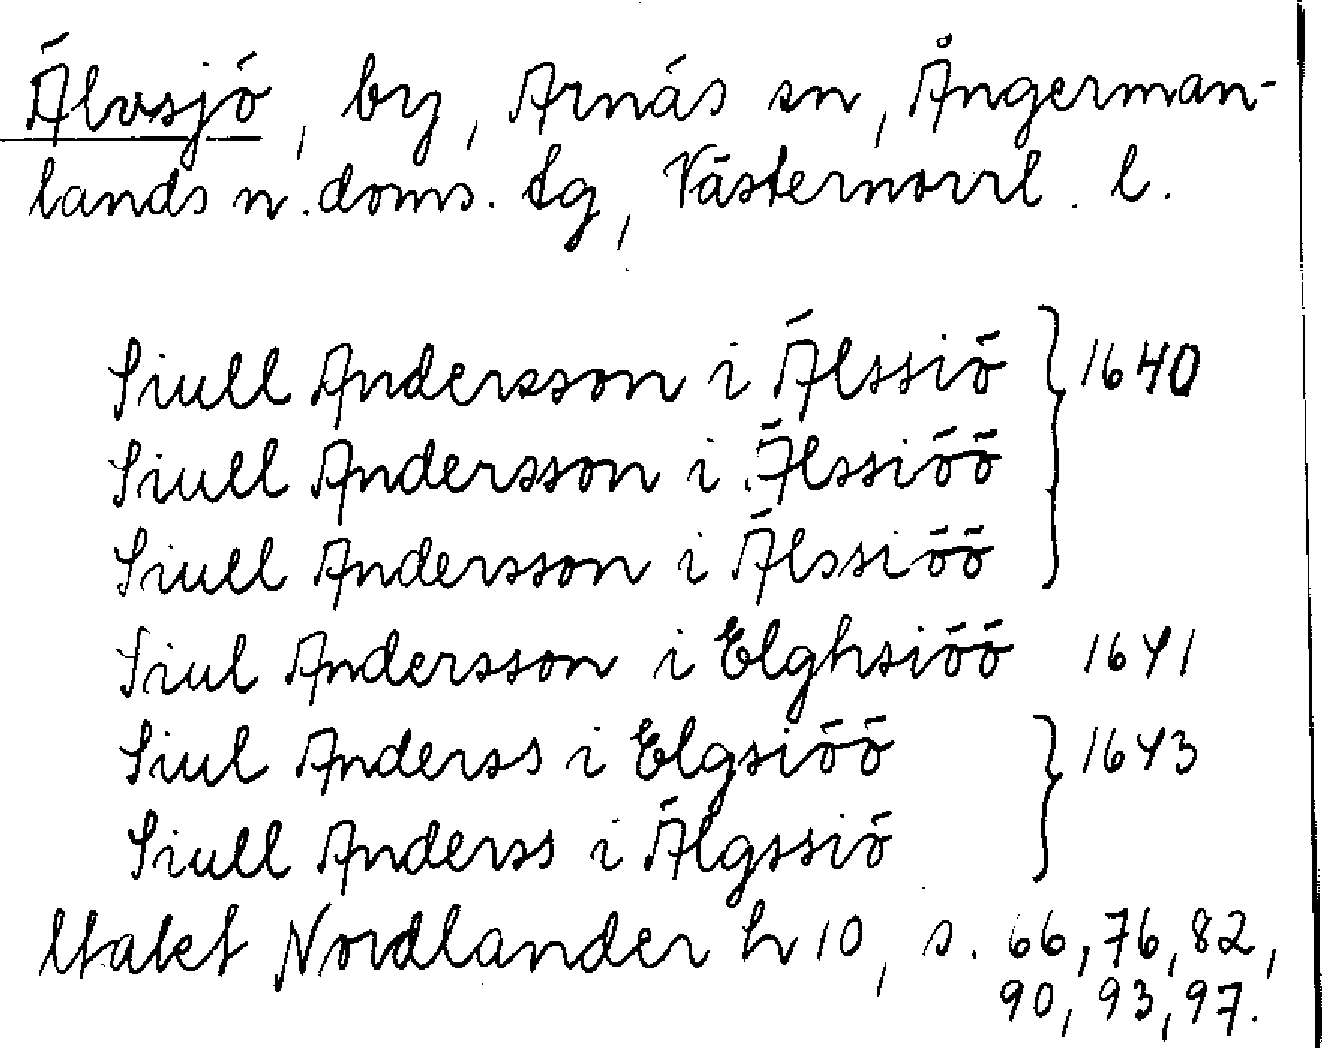 Älvsjö, by, Arnäs sn, Ångerman-
lands n. doms. tg, Västernorrl. l.
Siull Andersson i Älssiö } 1640
Siull Andersson i Älssiöö
Siull Andersson i Älssiöö
Siul Andersson i Elghsiöö 1641
Siul Anderss i Elgsiöö } 1643
Siull Anderss i Älgssiö
Makt Nordlander h 10, s. 66, 76, 82,
90, 93, 97.